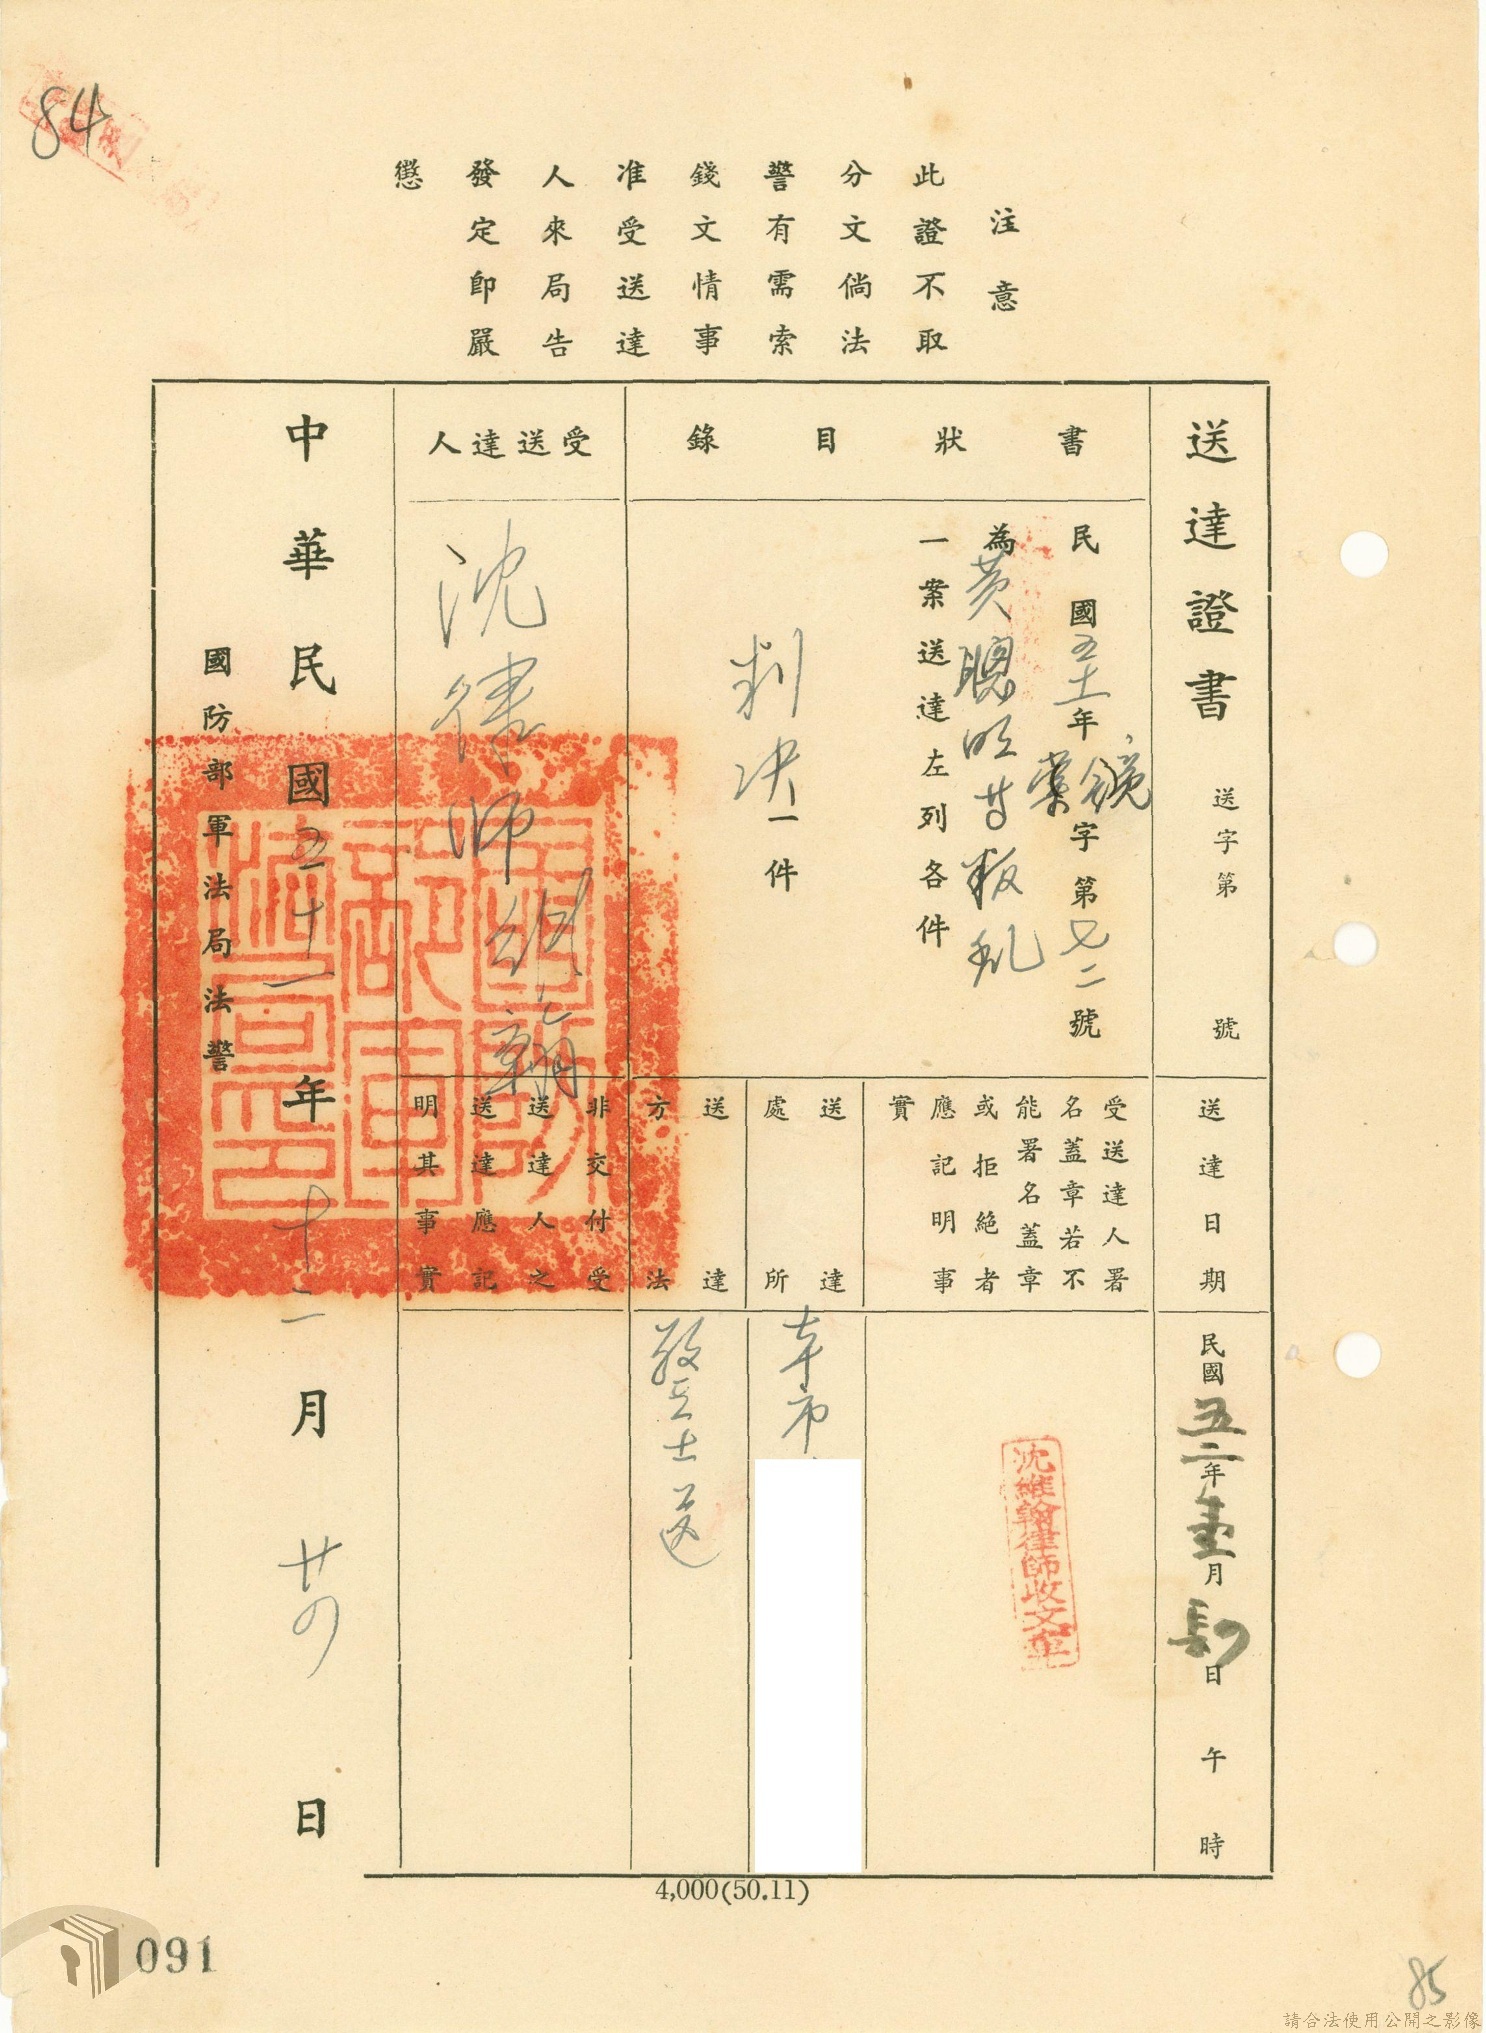 84
注意
此證不取
分文倘法
警有需索
錢文情事
准受送達
人來局告
發定即嚴
懲
送達證書 送字第 號
書狀目錄
民國五十一年 字第七二號
為黃聰明等叛亂
一案送達左列各件
判決一件
受送達人
沈律師維翰
送達日期
民國五二年壹月 日 午 時
受送達人署
名蓋章若不
能署名蓋章
或拒絕者
應記明事
實
沈維翰律師收文章
送達
處所
本市
送達
方法
送
非交付受
送達人之
送達應記
明其事實
中華民國五十一年十二月廿四日
國防部軍法局法警
4,000(50.11)
091
85
請合法使用公開之影像